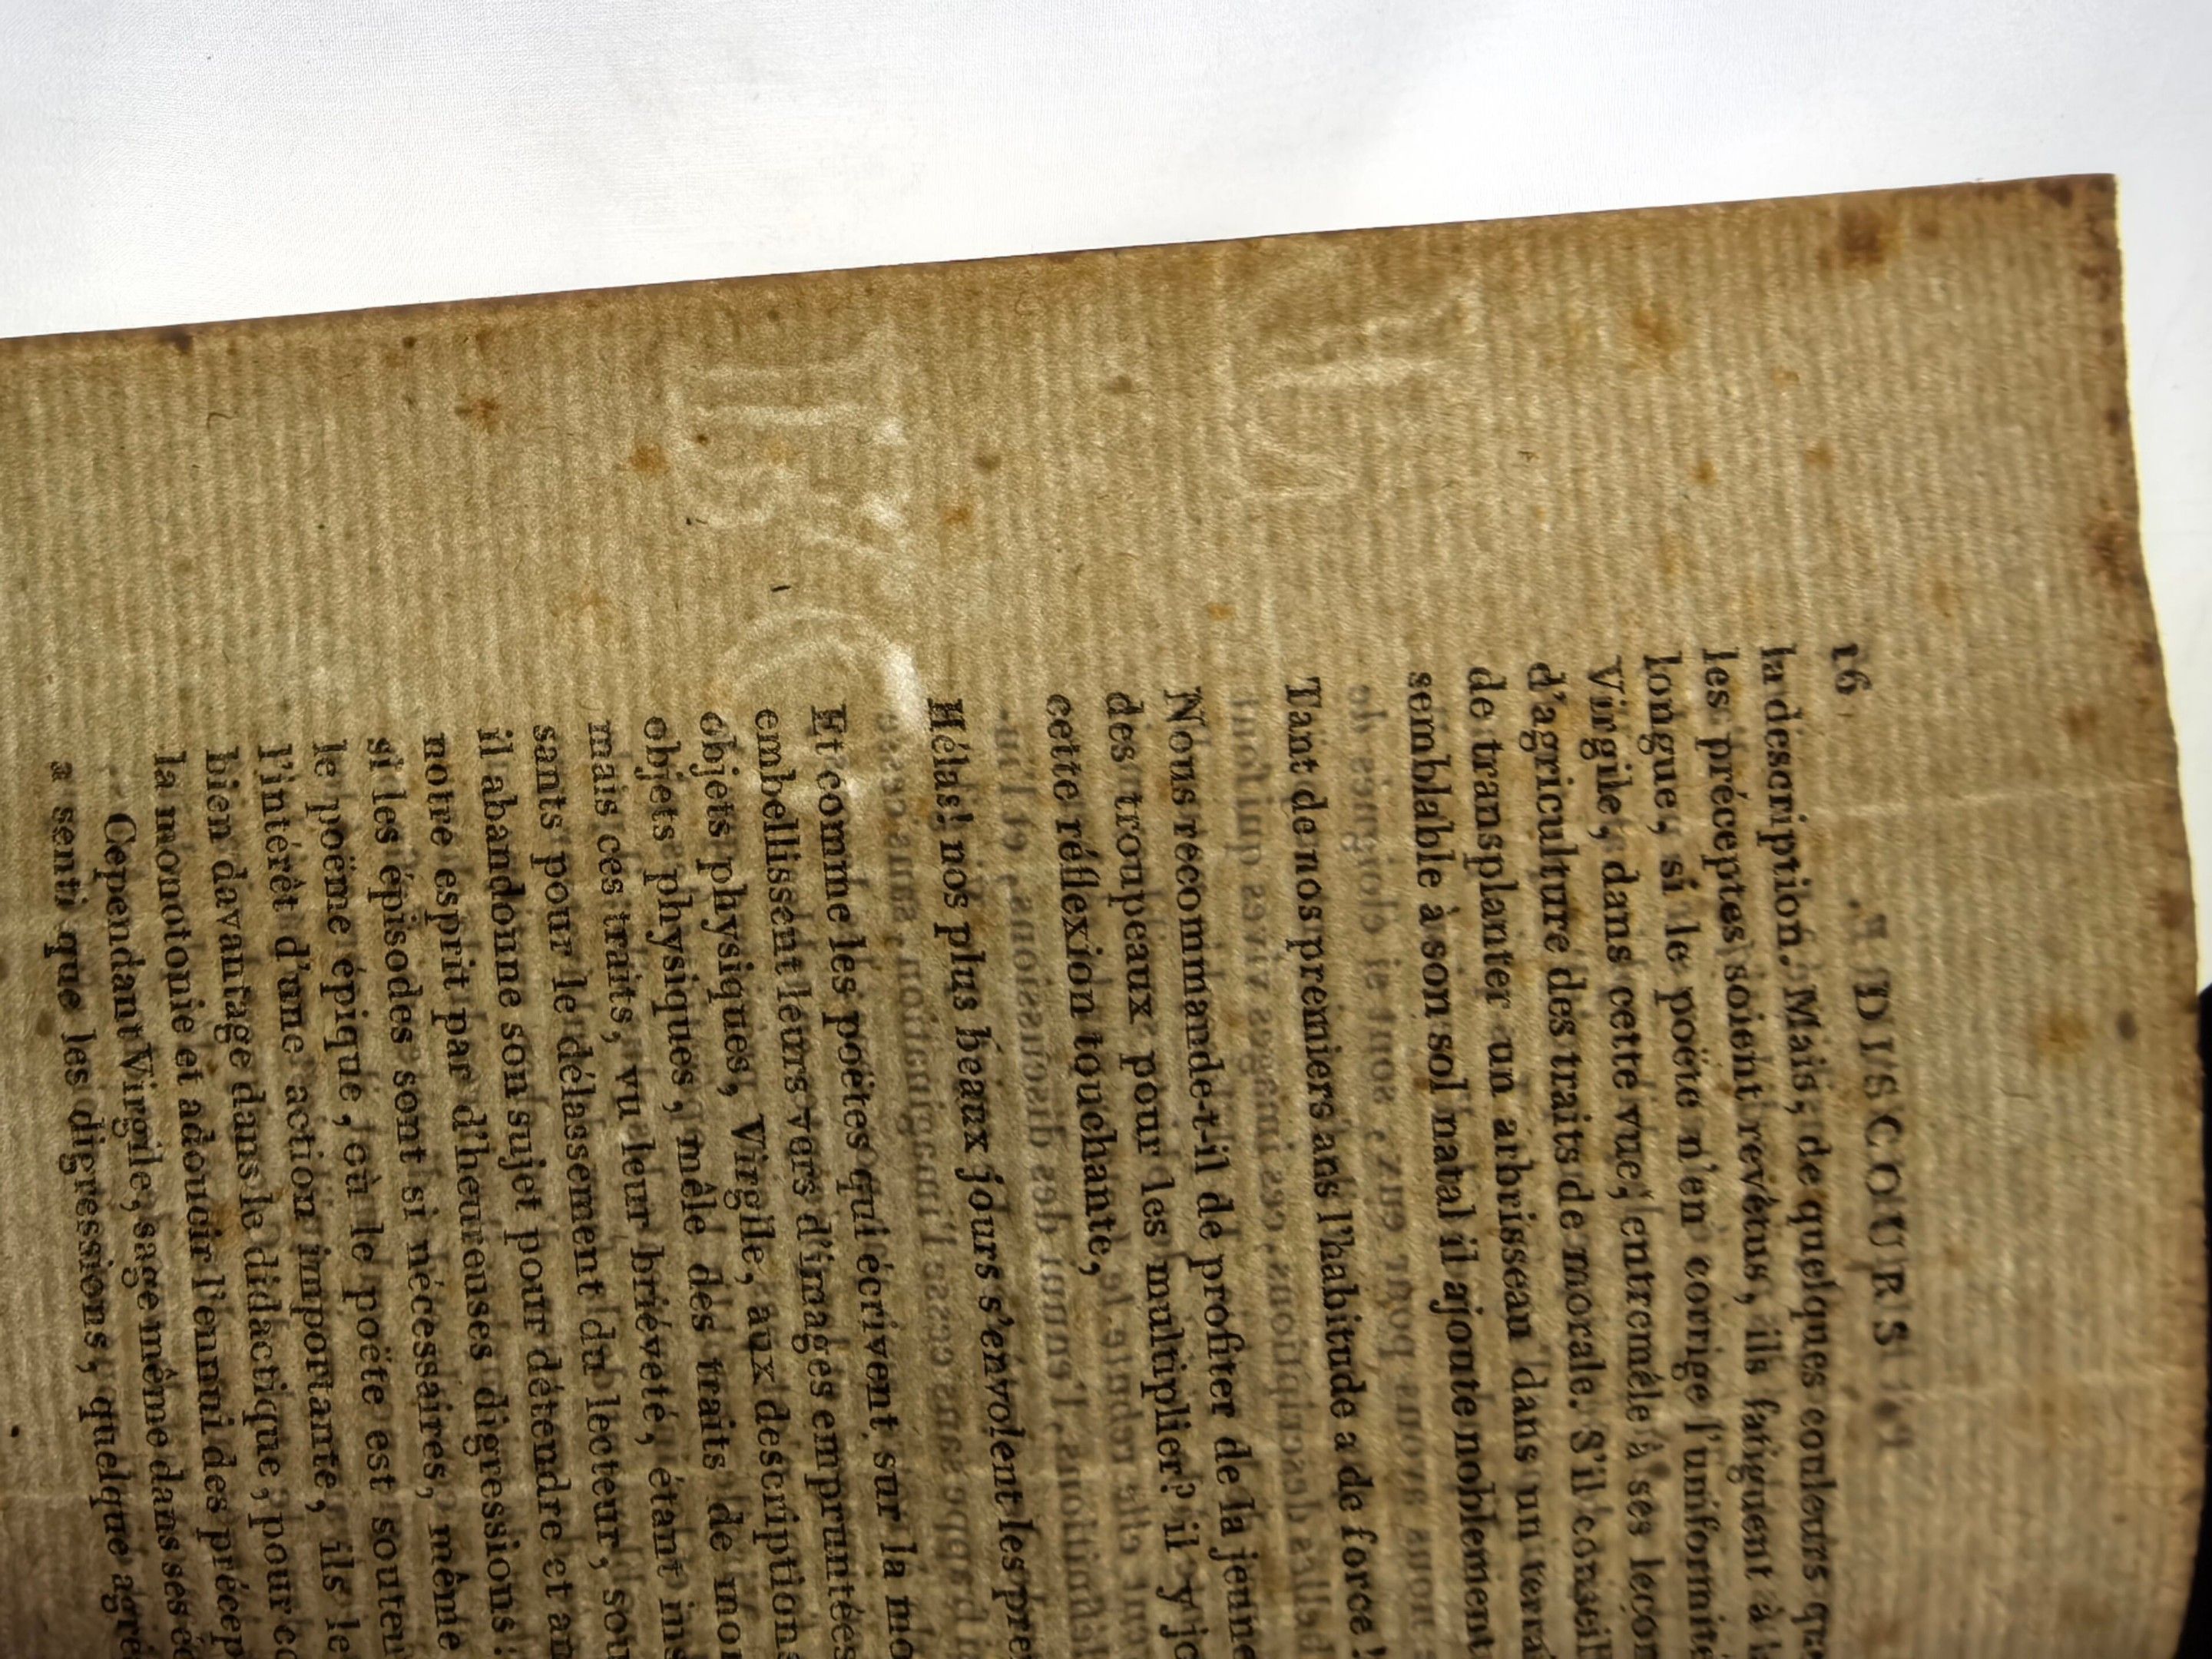 16 DISCOURS
la description. Mais, de quelques couleurs que
les préceptes soient revêtus, ils fatiguent à la
longue, si le poëte n'en corrige l'uniformité
Virgile, dans cette vue, entremêle à ses leçon
d'agriculture des traits de morale. S'il conseil
de transplanter un arbrisseau dans un terrai
semblable à son sol natal il ajoute noblement
Tant de nos premiers ans l'habitude a de force!
Nous recommande-t-il de profiter de la jeune
des troupeaux pour les multiplier? il y jo
cette réflexion touchante,
Hélas! nos plus beaux jours s'envolent les pre
Et comme les poëtes qui écrivent sur la mo
embellissent leurs vers d'images empruntées
objets physiques, Virgile, aux description
objets physiques, mêle des traits de mor
mais ces traits, vu leur briéveté, étant ins
sants pour le délassement du lecteur, sou
il abandonne son sujet pour détendre et am
notre esprit par d'heureuses digressions:
si les épisodes sont si nécessaires, même
le poëme épique, où le poëte est souten
l'intérêt d'une action importante, ils le
bien davantage dans le didactique, pour co
la monotonie et adoucir l'ennui des précep
Cependant Virgile, sage même dans ses é
a senti que les digressions, quelque agré